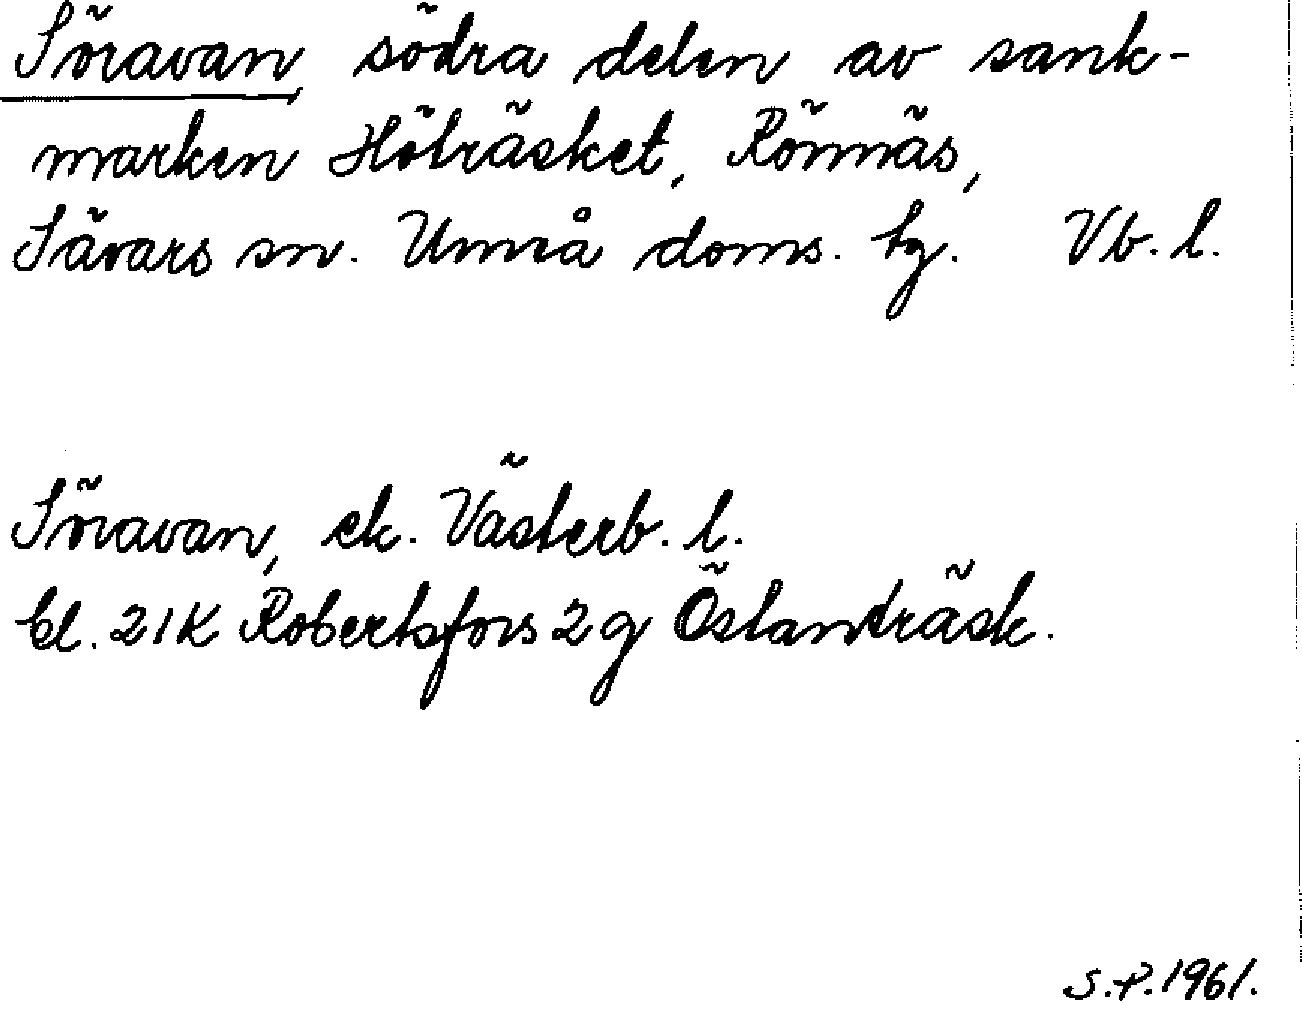 Söravan södra delen av sank-
marken Höträsket, Rönnäs,
Sävars sn. Umeå doms. tg. Vb. l.
Söravan, ek. Västerb. l.
bl. 21K Robertsfors 2 g Östanträsk.
S.P. 1961.